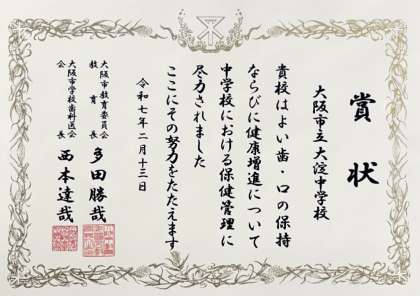 賞状
大阪市立大淀中学校
貴校はよい歯・口の保持
ならびに健康増進について
中学校における保健管理に
尽力されました
ここにその努力をたたえます
令和七年二月十三日
大阪市教育委員会
教育長 多田勝哉
大阪市学校歯科医会
会長 西本達哉